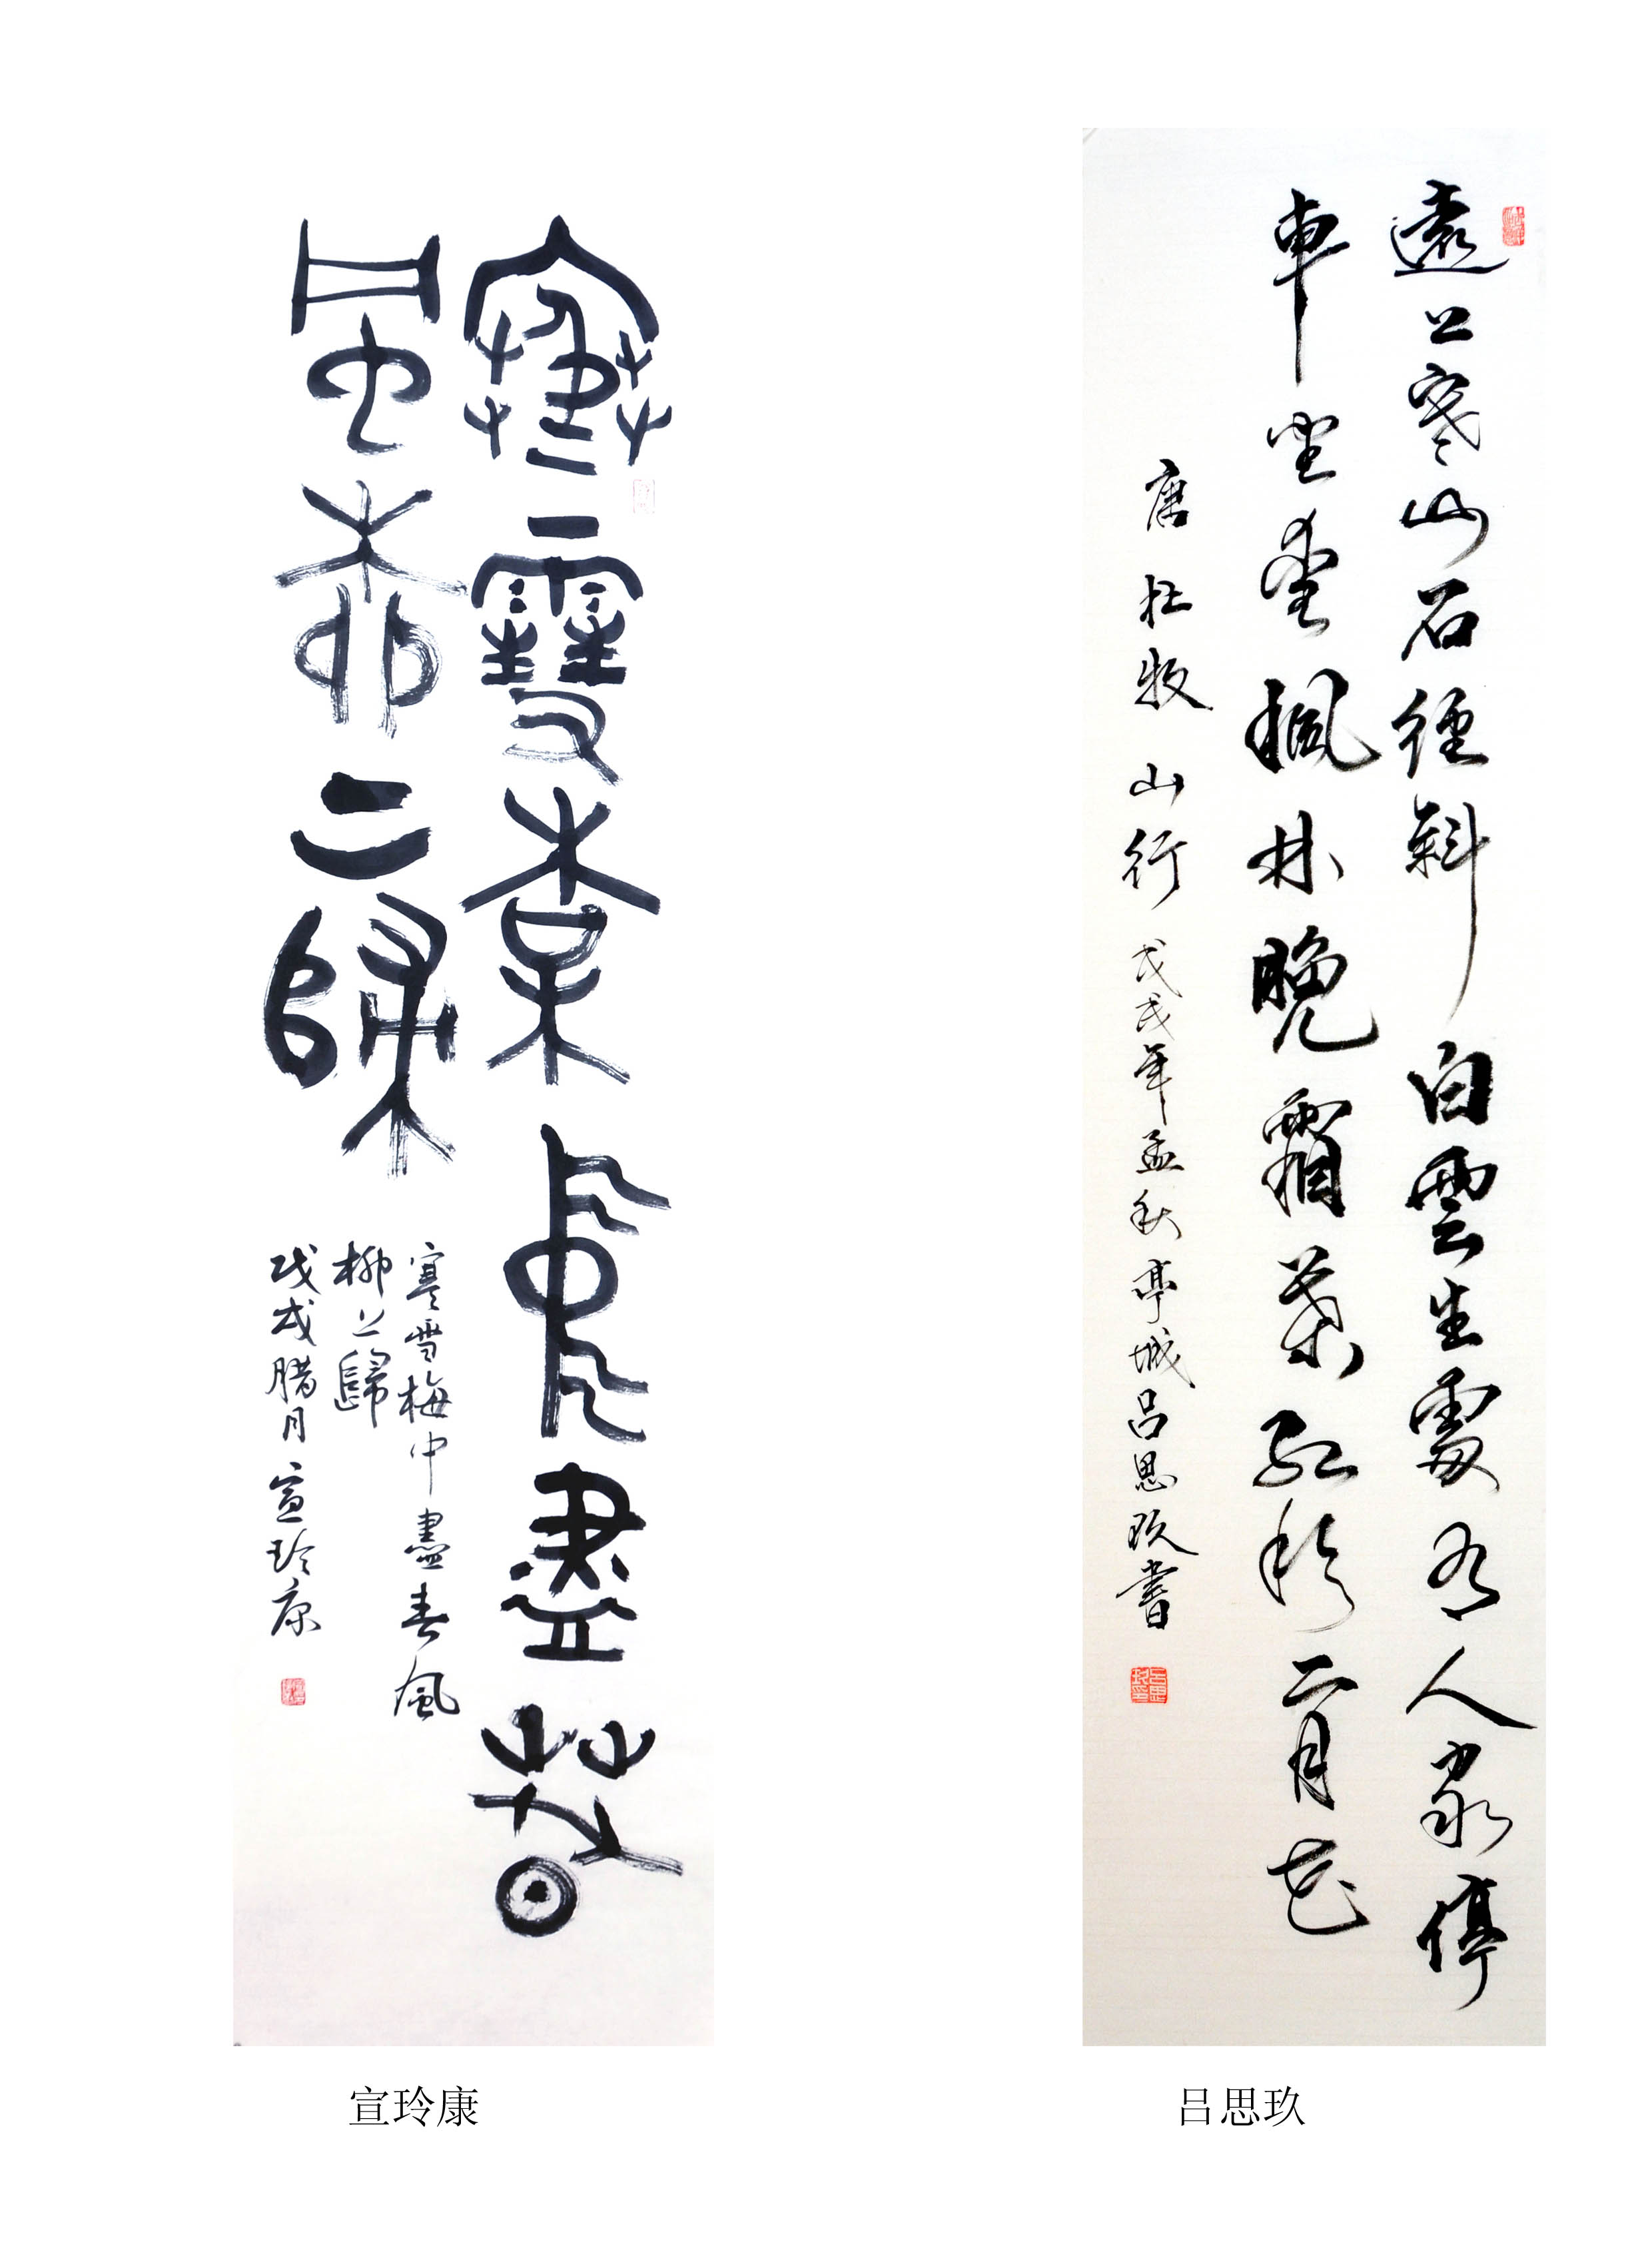 遠上寒山石徑斜白雲生處有人家停
車坐愛楓林晚霜葉紅於二月花
唐杜牧山行戊戌年孟秋亭城吕思玖書
吕思玖
寒雪梅中盡春
風柳上歸
寒雪梅中盡春風
柳上歸
戊戌腊月宣玲康
宣玲康